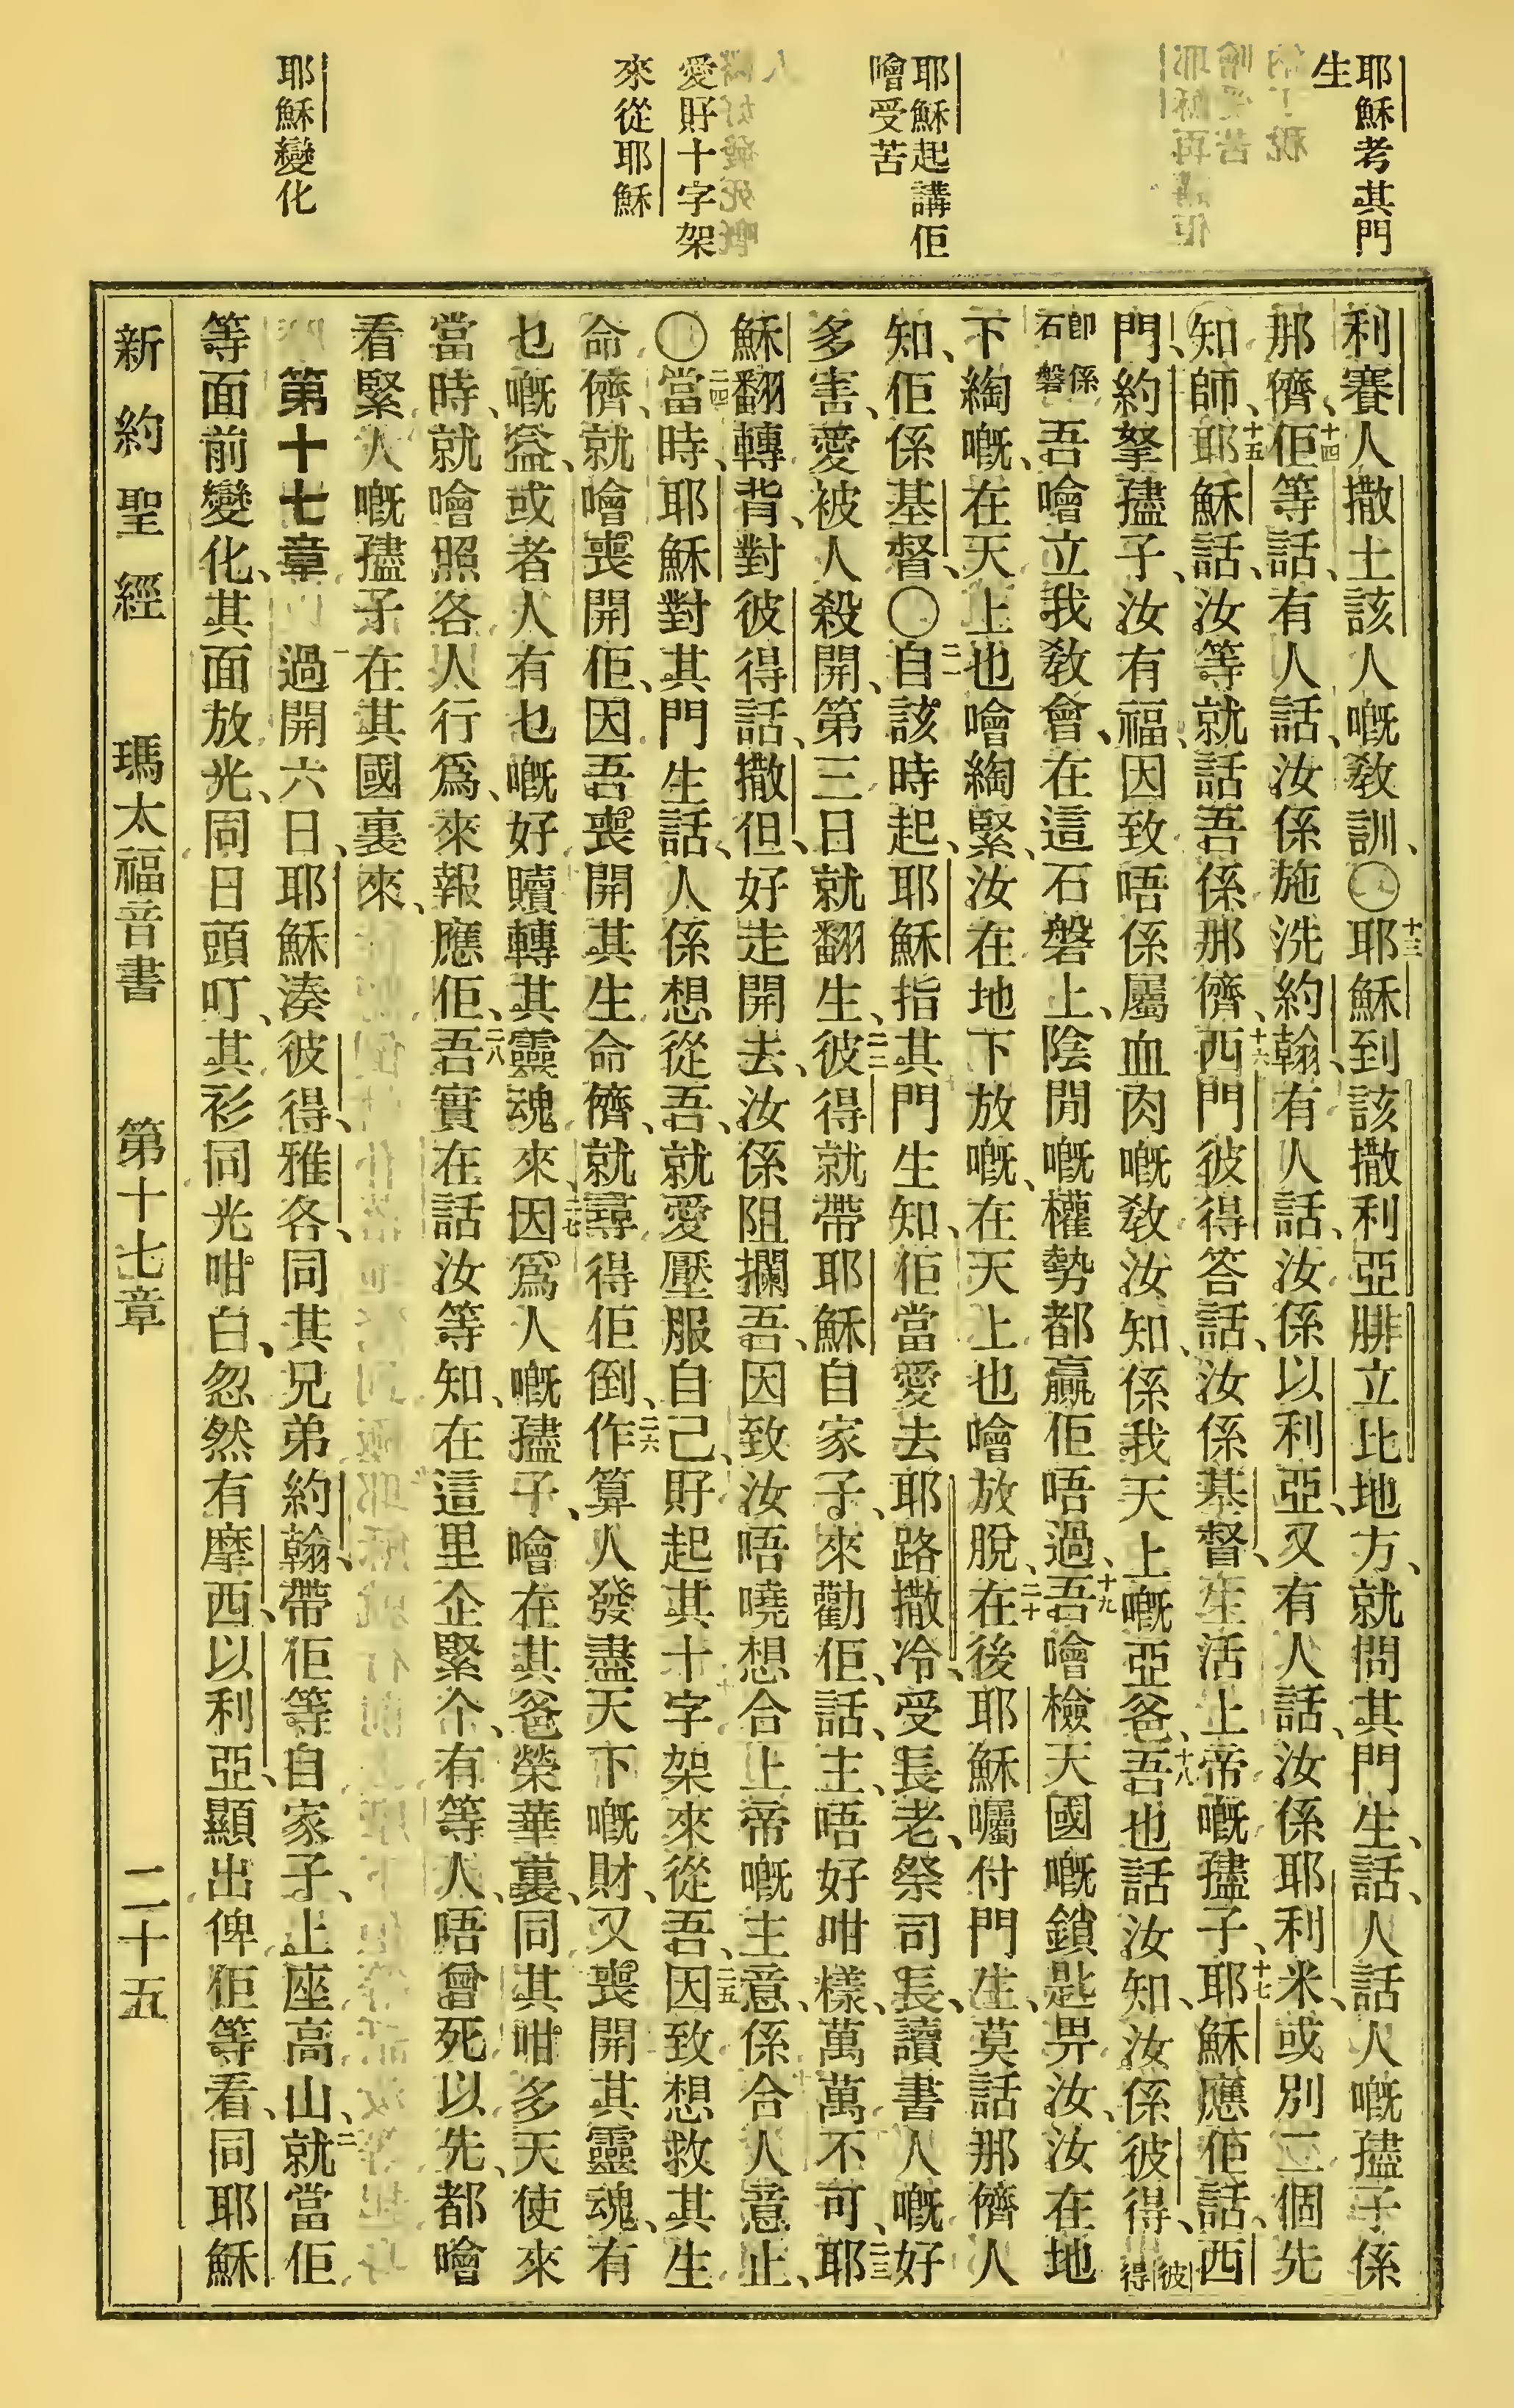 耶穌考其門
生
耶穌起講佢
噲受苦
愛𢬿十字架
來從耶穌
耶穌變化
利賽人撒土該人嘅敎訓、〇十三耶穌到該撒利亞腓立比地方、就問其門生、話、人話人嘅𡥧子係
那儕、十四佢等話、有人話、汝係施洗約翰、有人話、汝係以利亞、又有人話、汝係耶利米、或別二個先
知師、十五耶穌話、汝等就話吾係那儕、十六西門彼得答話、汝係基督、生活上帝嘅𡥧子、十七耶穌應佢話、西
門、約拏𡥧子、汝有福、因致唔係屬血肉嘅敎汝知、係我天上嘅亞爸、十八吾也話汝知、汝係彼得、彼得
卽係石磐吾噲立我敎會、在這石磐上、陰間嘅權勢都贏佢唔過、十九吾噲檢天國嘅鎖匙畀汝、汝在地
下綯嘅、在天上也噲綯緊、汝在地下放嘅、在天上也噲放脫、二十在後耶穌囑付門生、莫話那儕人
知、佢係基督、〇二一自該時起、耶穌指其門生知、佢當愛去耶路撒冷、受長老、祭司長、讀書人嘅好
多害、愛被人殺開、第三日就翻生、二二彼得就帶耶穌自家子、來勸佢、話、主、唔好咁樣、萬萬不可、二三耶
穌翻轉背、對彼得話、撒但、好走開去、汝係阻攔吾、因致汝唔曉想合上帝嘅主意、係合人意止、
〇二四當時、耶穌對其門生話、人係想從吾、就愛壓服自己、𢬿起其十字架來從吾、二五因致想救其生
命儕、就噲喪開佢、因吾喪開其生命儕、就尋得佢倒、二六作算人發盡天下嘅財、又喪開其靈魂、有
乜嘅益、或者人有乜嘅好贖轉其靈魂來、二七因爲人嘅𡥧子、噲在其爸榮華裏、同其咁多天使來
當時、就噲照各人行爲、來報應佢、二八吾實在話汝等知、在這里企緊个、有等人、唔曾死以先、都噲
看緊人嘅𡥧子在其國裏來、
第十七章 一過開六日、耶穌湊彼得、雅各、同其兄弟約翰、帶佢等自家子、上座高山、二就當佢
等面前變化、其面放光、同日頭叮、其衫同光咁白、忽然有摩西、以利亞、顯出俾佢等看、同耶穌
新約聖經 瑪太福音書 第十七章 二十五